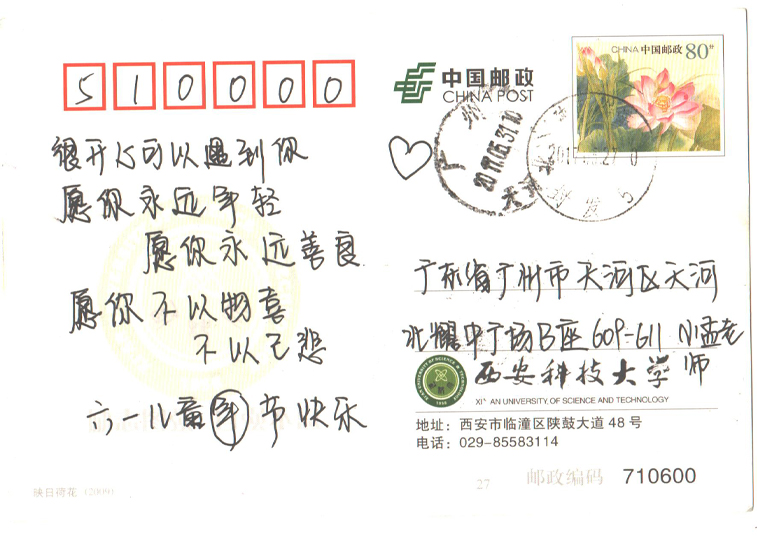 510000
很开心可以遇到你
愿你永远年轻
愿你永远善良
愿你不以物喜
不以己悲
六一儿童节快乐
映日荷花 (2009)
中国邮政
CHINA POST
CHINA 中国邮政 80分
广州
2017.05.31.10
天河
广东省广州市天河区天河
北耀中广场B座609-611 小孟老
师
西安科技大学
XI' AN UNIVERSITY OF SCIENCE AND TECHNOLOGY
地址：西安市临潼区陕鼓大道 48 号
电话：029-85583114
27
邮政编码 710600